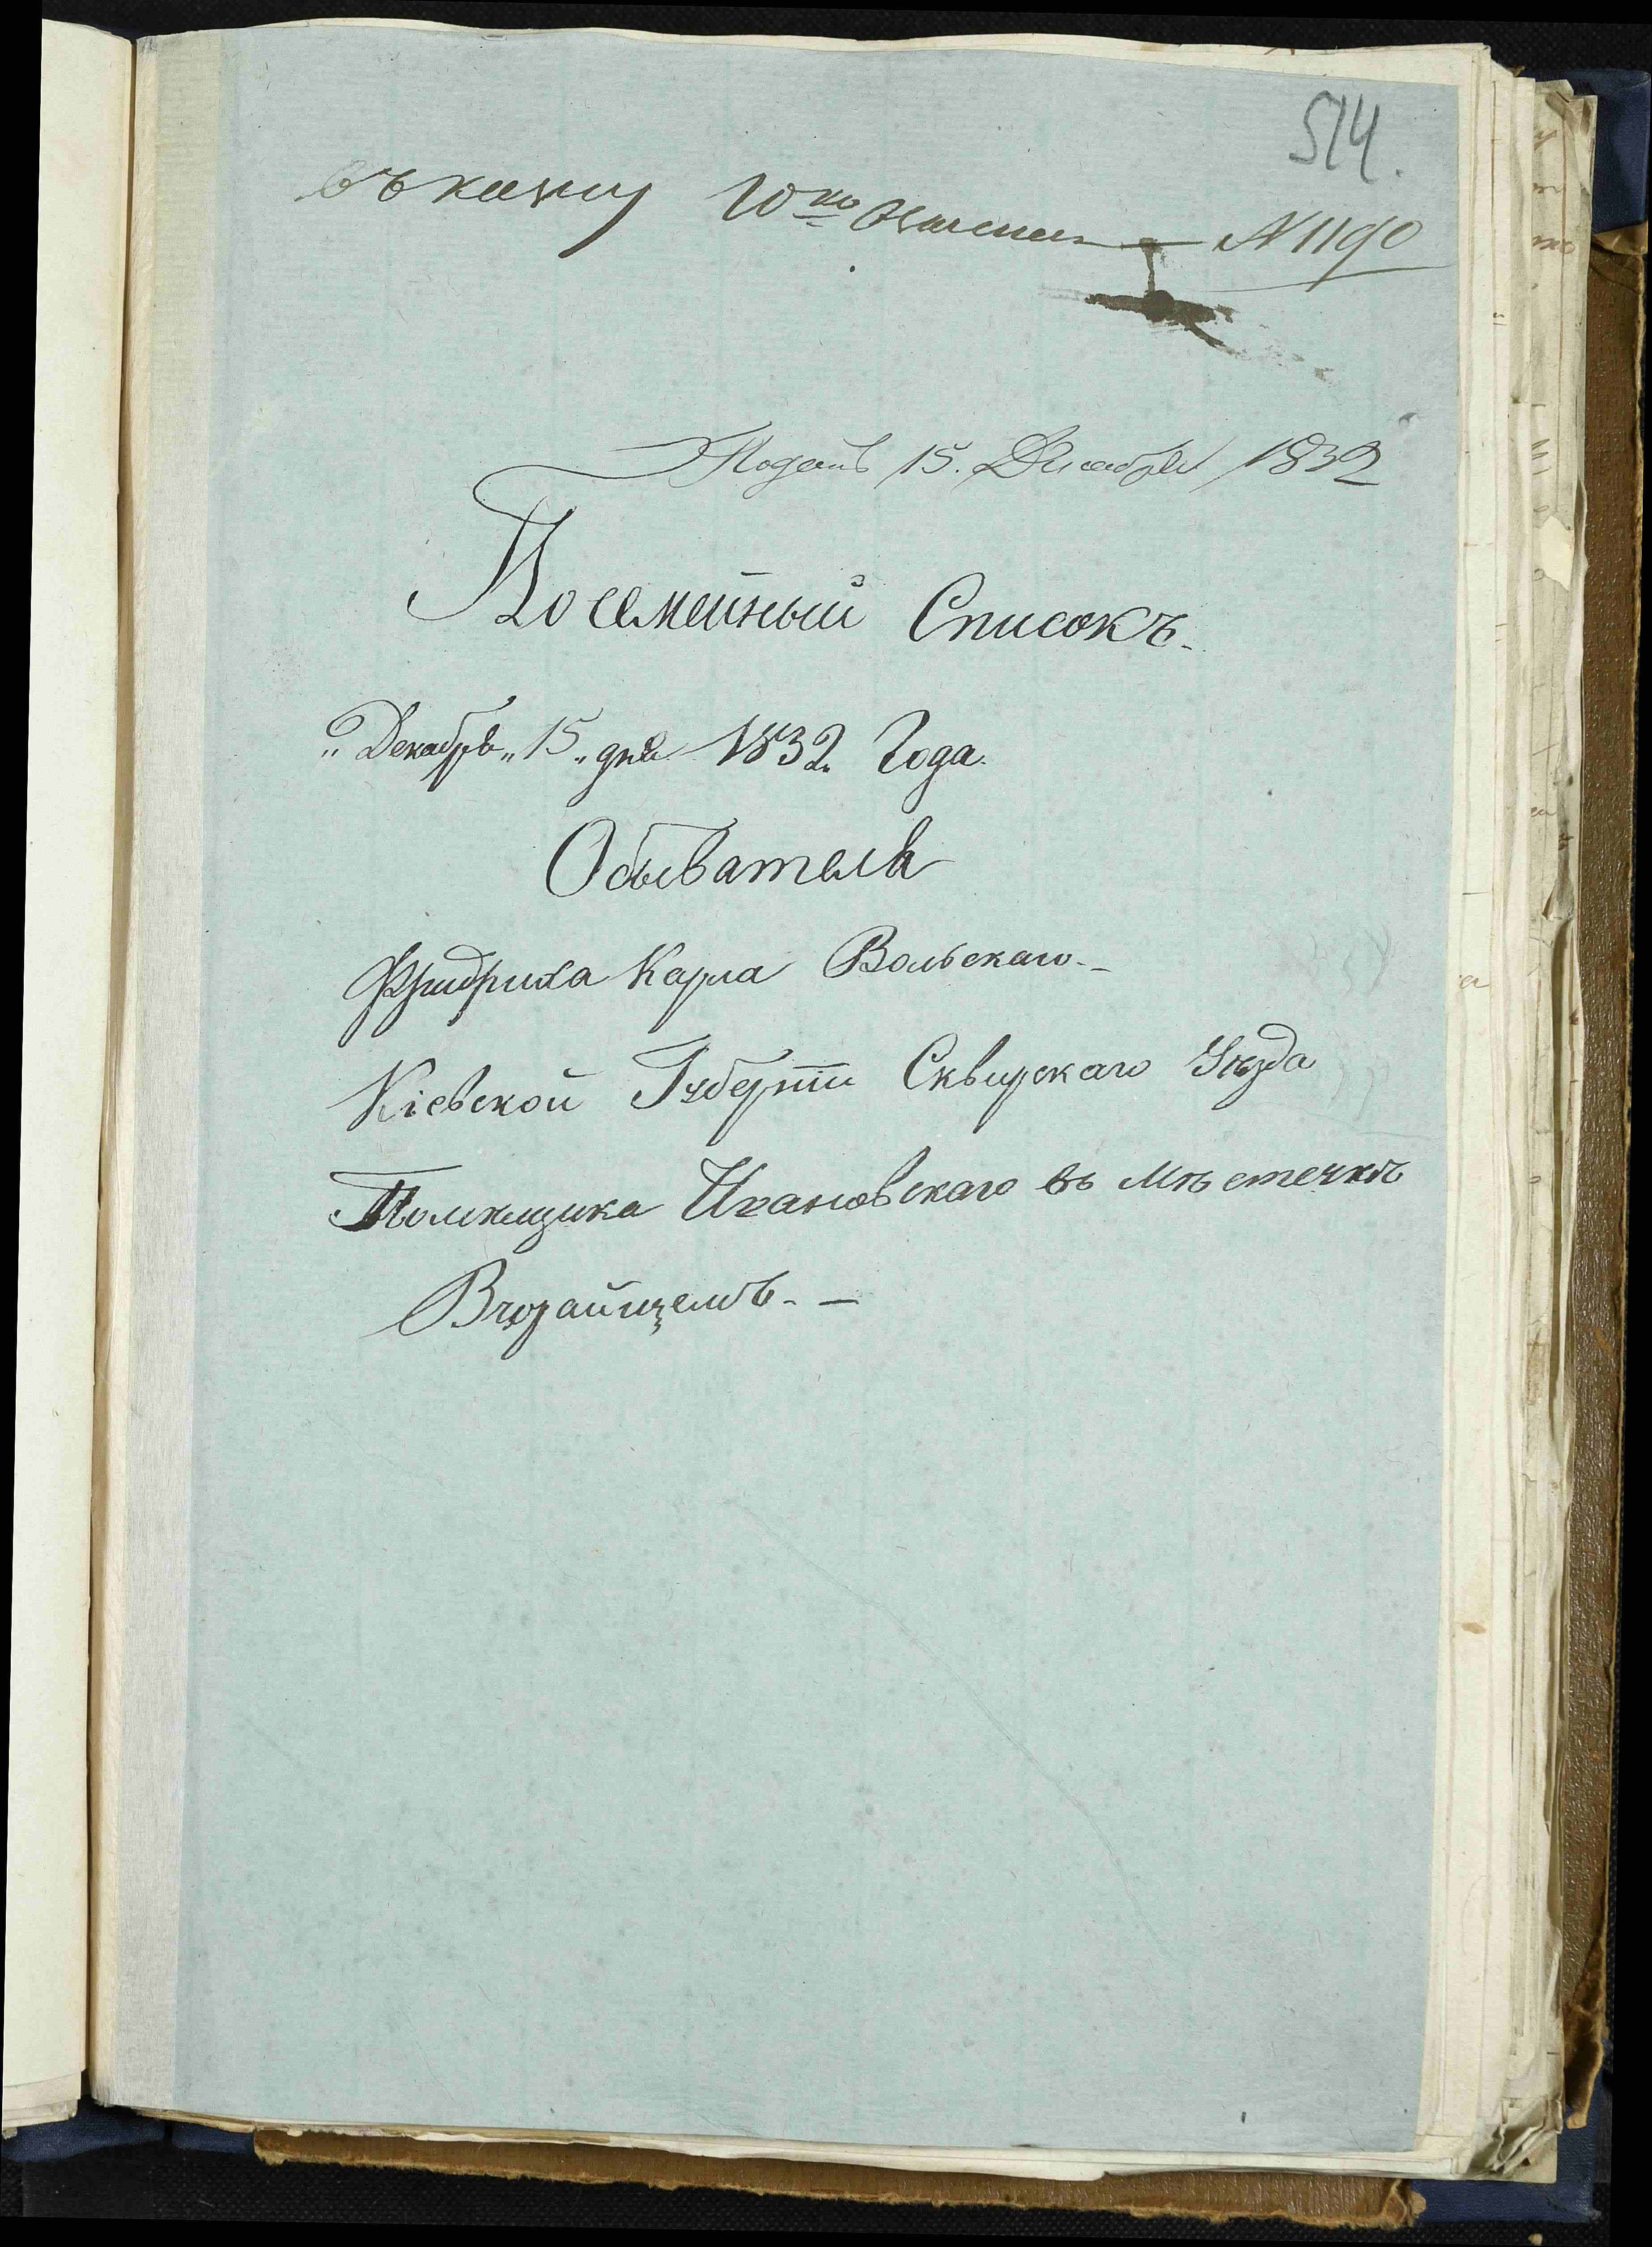 514.
въ кассу 10ко N 1190
Поданъ 15. Декабря 1832
Посемейный Списокъ.
„Декабрь„ 15 „дня 1832 Года.
Обывателя
Фридриха Карла Вольскаго. -
Кіевской Губерніи Сквирскаго Уезда
Помещика Ивановскаго въ Местечкѣ